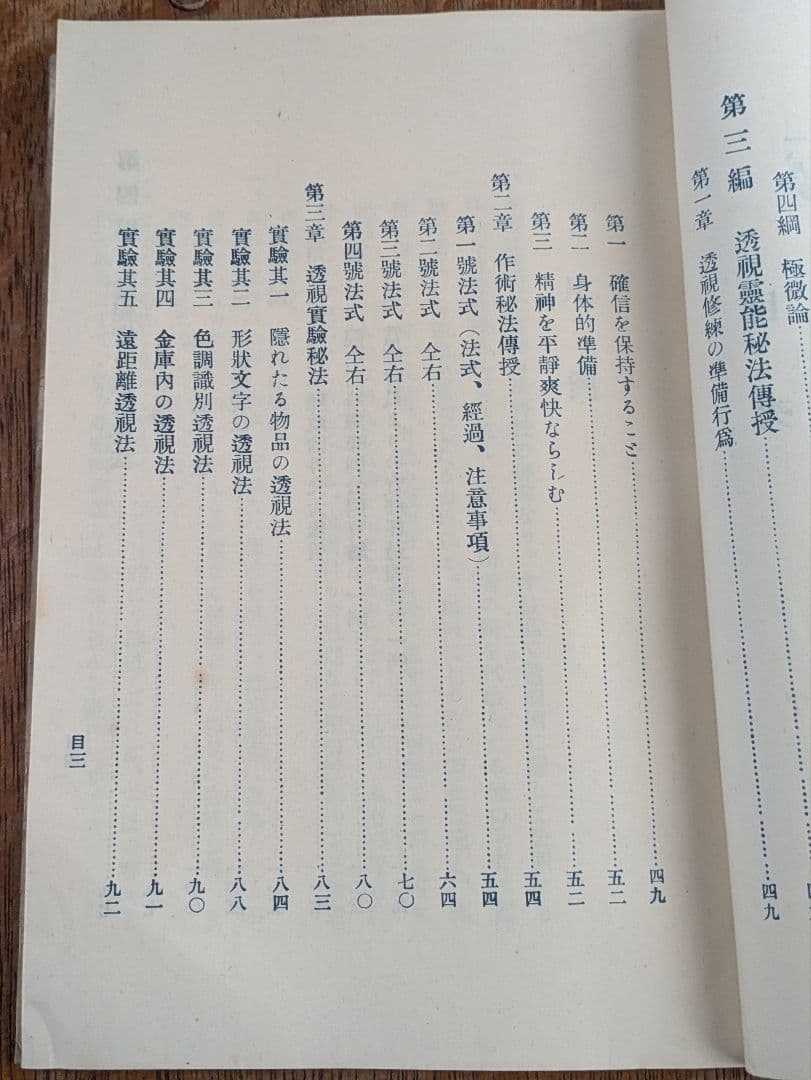 第四綱 極微論
第三編 透視靈能秘法傳授
第一章 透視修練の準備行爲……四九
第一 確信を保持すること……四九
第二 身体的準備……五二
第三 精神を平靜爽快ならしむ……五二
第二章 作術秘法傳授……五四
第一號法式（法式、經過、注意事項）……五四
第二號法式 仝右……六四
第三號法式 仝右……七〇
第四號法式 仝右……八〇
第三章 透視實驗秘法……八三
實驗其一 隱れたる物品の透視法……八四
實驗其二 形狀文字の透視法……八八
實驗其三 色調識別透視法……九〇
實驗其四 金庫內の透視法……九一
實驗其五 遠距離透視法……九二
目三